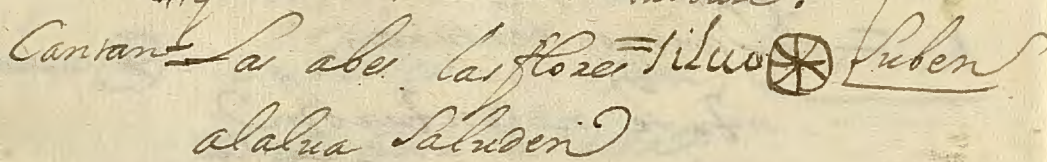 Cantan = Las abes las flores = siluo Suben
alalua Saluden